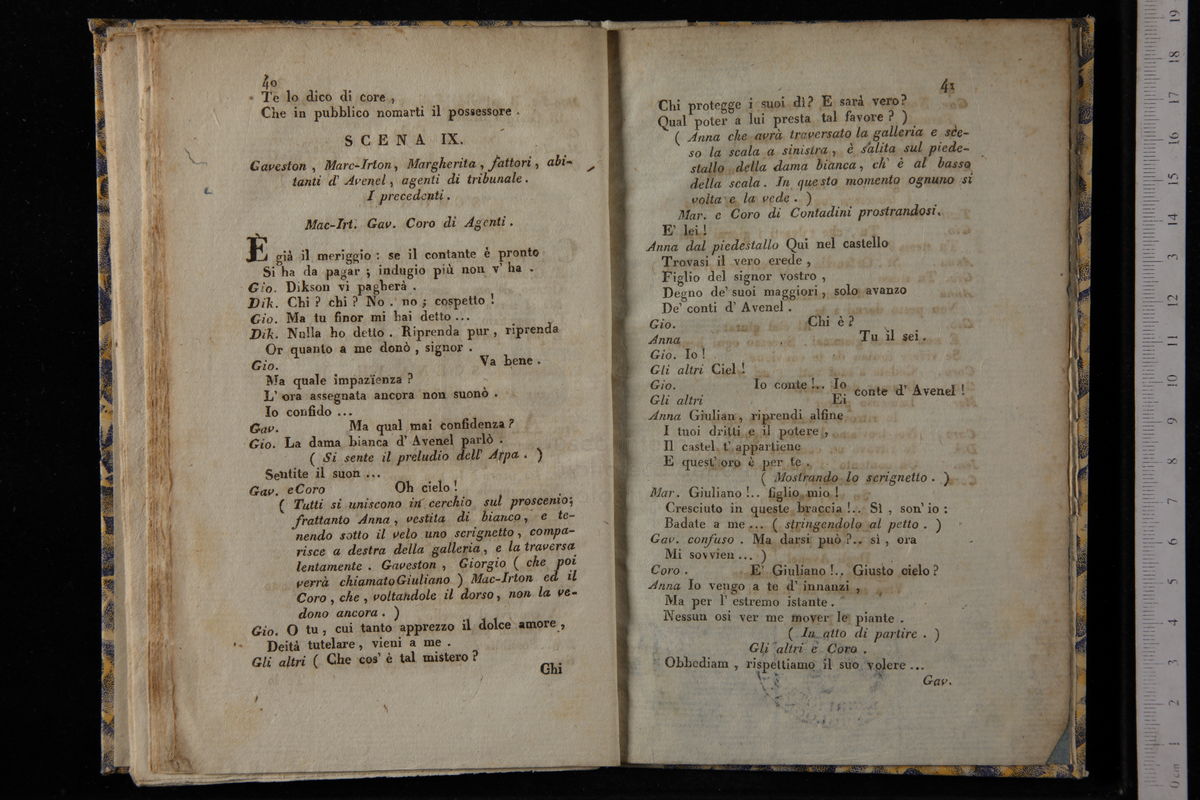 40
Te lo dico di core ,
Che in pubblico nomarti il possessore .
SCENA IX.
Gaveston , Marc-Irton, Margherita , fattori , abi-
tanti d' Avenel , agenti di tribunale .
I precedenti .
Mac-Irt. Gav. Coro di Agenti .
È già il meriggio : se il contante è pronto
Si ha da pagar ; indugio più non v' ha .
Gio. Dikson vi pagherà .
Dik. Chi ? chi ? No . no ; cospetto !
Gio. Ma tu finor mi hai detto ...
Dik. Nulla ho detto . Riprenda pur , riprenda
Or quanto a me donò , signor .
Gio. Va bene .
Ma quale impazïenza ?
L' ora assegnata ancora non suonò .
Io confido ...
Gav. Ma qual mai confidenza ?
Gio. La dama bianca d' Avenel parlò .
( Si sente il preludio dell' Arpa . )
Sentite il suon ...
Gav. e Coro Oh cielo !
( Tutti si uniscono in cerchio sul proscenio;
frattanto Anna , vestita di bianco , e te-
nendo sotto il velo uno scrignetto , compa-
risce a destra della galleria , e la traversa
lentamente . Gaveston , Giorgio ( che poi
verrà chiamato Giuliano ) Mac-Irton ed il
Coro , che , voltandole il dorso , non la ve-
dono ancora . )
Gio. O tu , cui tanto apprezzo il dolce amore ,
Deità tutelare , vieni a me .
Gli altri ( Che cos' è tal mistero ?
Chi
41
Chi protegge i suoi dì? E sarà vero?
Qual poter a lui presta tal favore ? )
( Anna che avrà traversato la galleria e sce-
so la scala a sinistra , è salita sul piede-
stallo della dama bianca , ch' è al basso
della scala . In questo momento ognuno si
volta e la vede . )
Mar. e Coro di Contadini prostrandosi.
E' lei !
Anna dal piedestallo Qui nel castello
Trovasi il vero erede ,
Figlio del signor vostro ,
Degno de' suoi maggiori , solo avanzo
De' conti d' Avenel .
Gio. Chi è ?
Anna Tu il sei .
Gio. Io !
Gli altri Ciel !
Gio. Io conte !.. Io
Gli altri Ei conte d' Avenel !
Anna Giulian , riprendi alfine
I tuoi dritti e il potere ,
Il castel t' appartiene
E quest' oro è per te .
( Mostrando lo scrignetto . )
Mar. Giuliano !.. figlio mio !
Cresciuto in queste braccia !.. Sì , son' io :
Badate a me ... ( stringendolo al petto . )
Gav. confuso . Ma darsi può ?.. sì , ora
Mi sovvien ... )
Coro . E' Giuliano !.. Giusto cielo ?
Anna Io vengo a te d' innanzi ,
Ma per l' estremo istante .
Nessun osi ver me mover le piante .
( In atto di partire . )
Gli altri e Coro .
Obbediam , rispettiamo il suo volere ...
Gav.